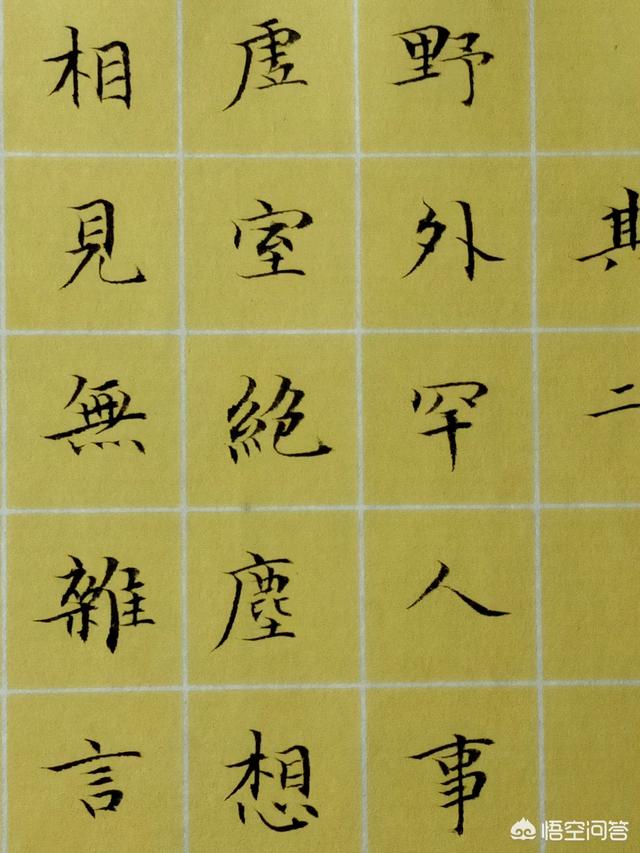 其二
野外罕人事
虛室絕塵想
相見無雜言
悟空问答